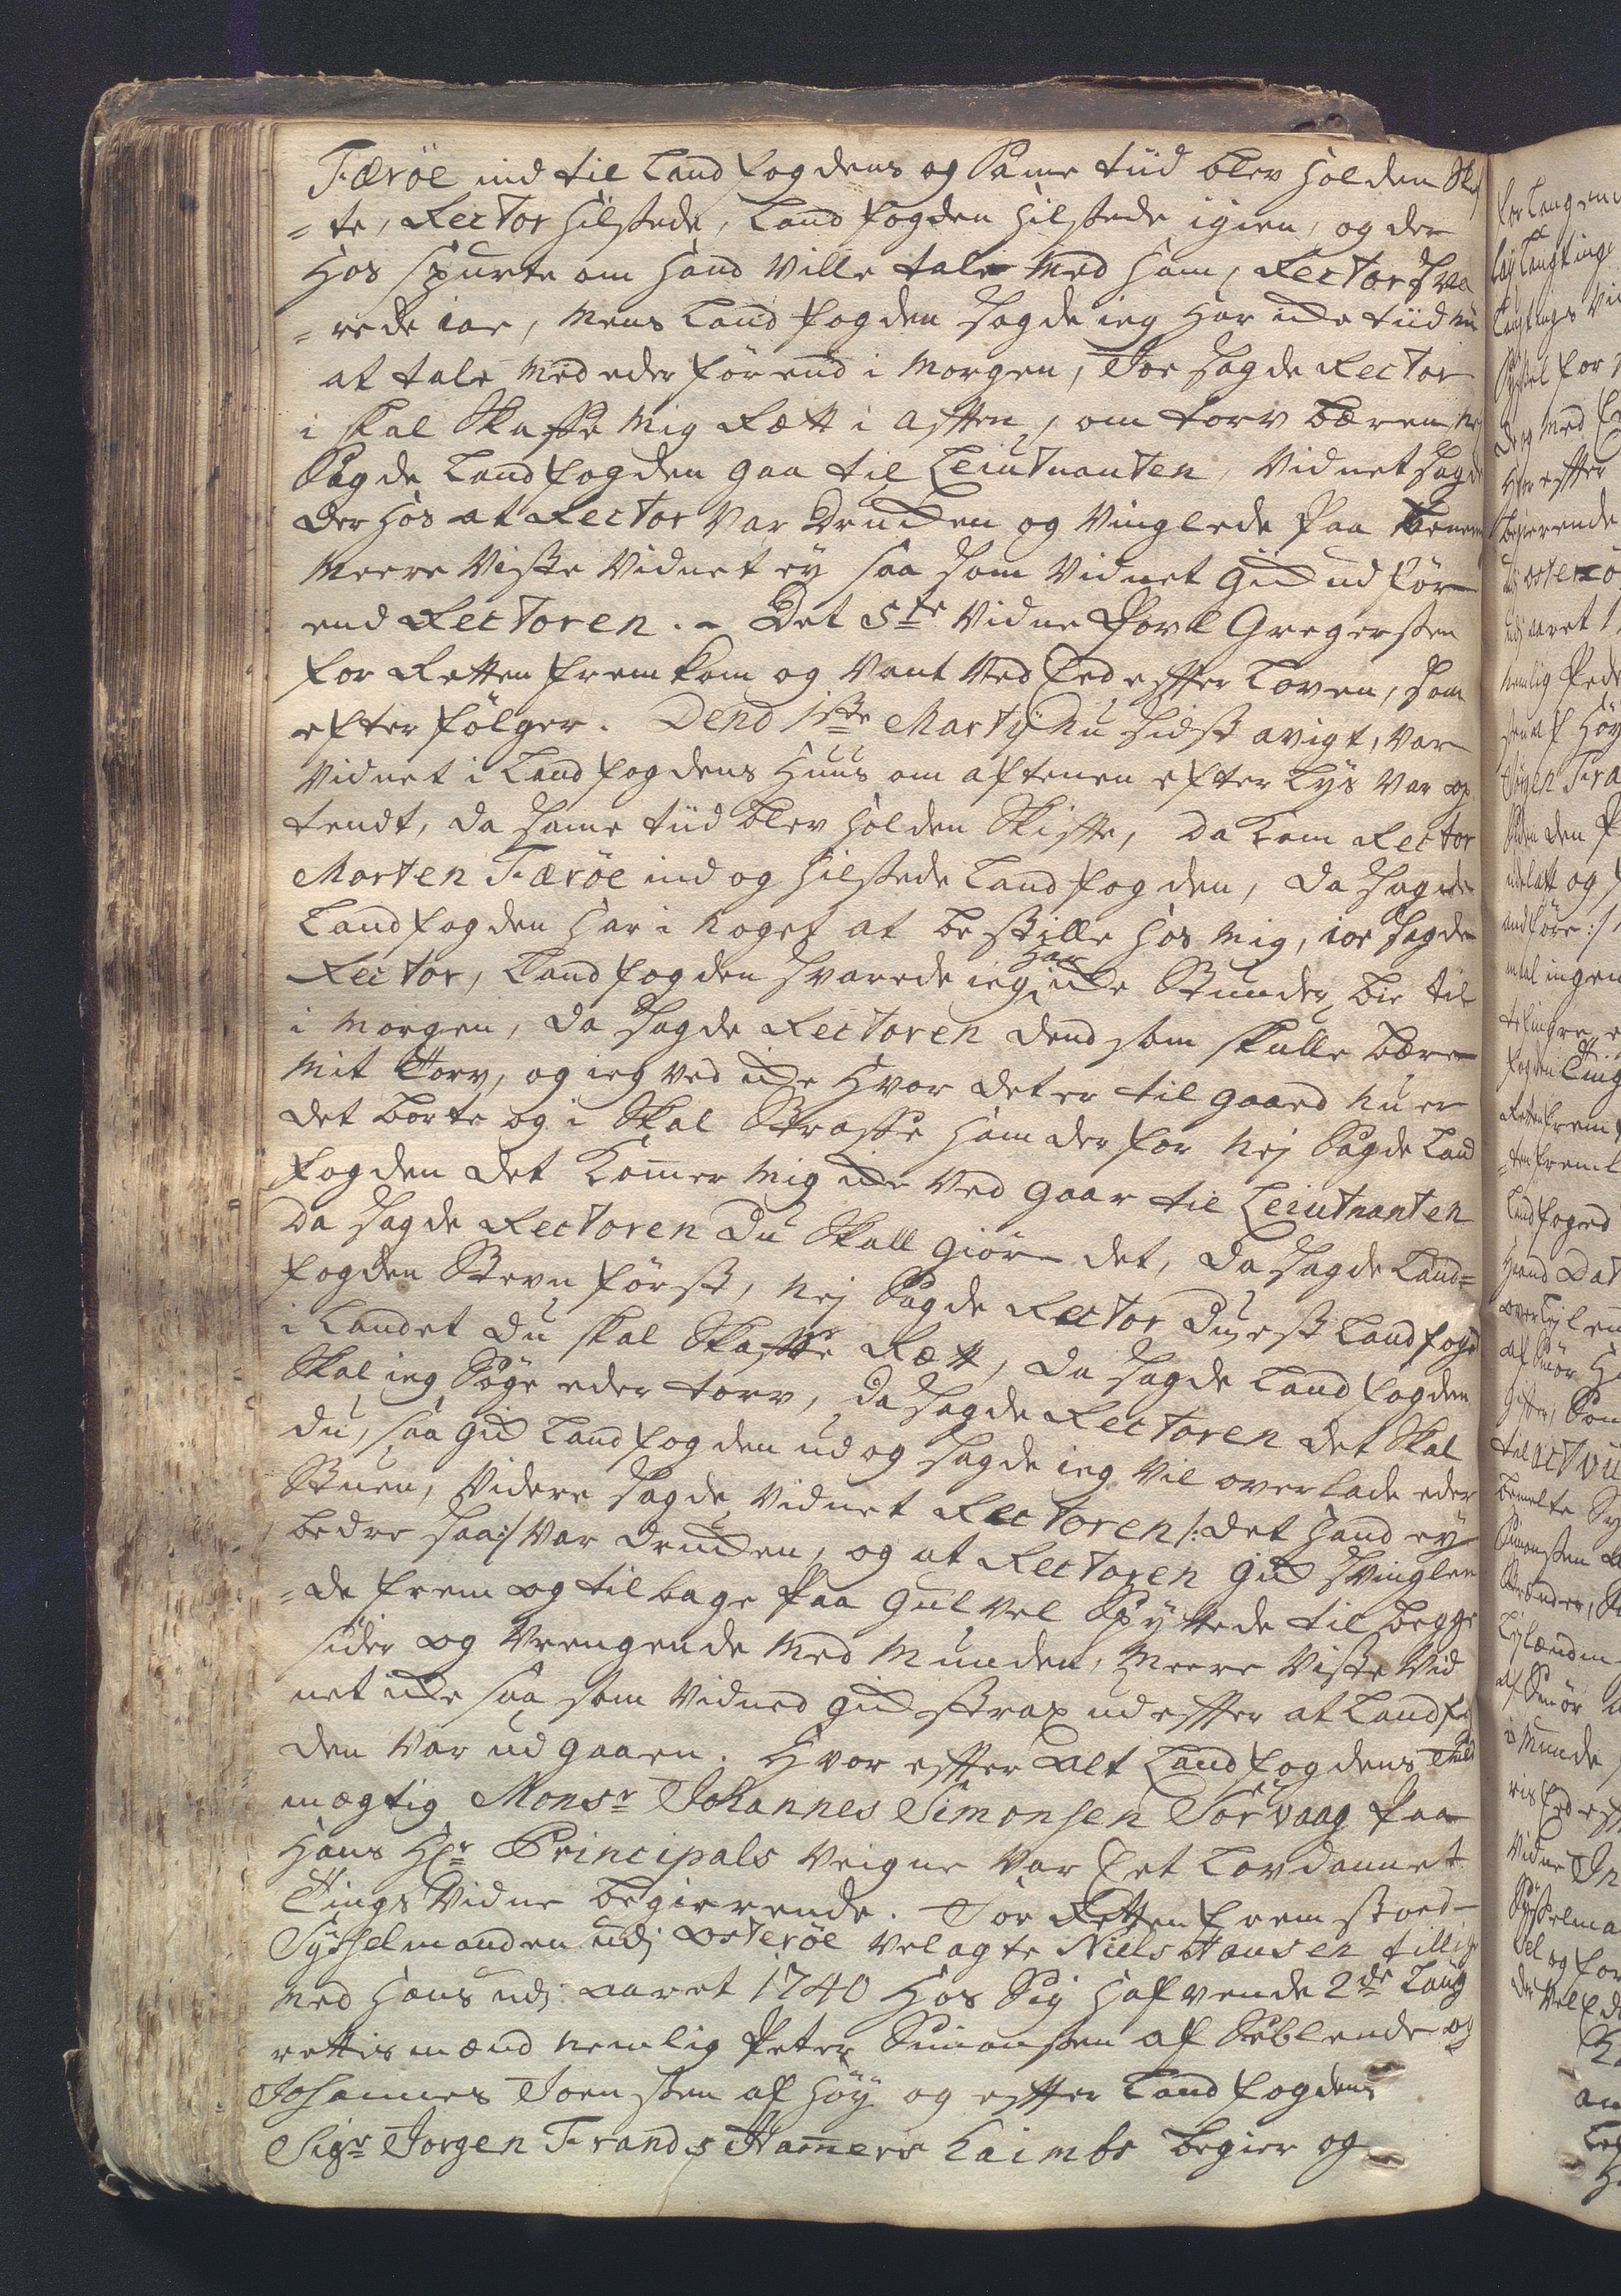 Færöe ind til Landfogdens og Same tiid blev holden Skif
=te, Rector hilstede, Landfogden hilstede igien, og der
hos spurte om hand Ville tale Med ham, Rector Sva
=rede ioe, Mens Landfogden sagde ieg har icke tiid nu
at tale Med eder förend i Morgen, Joe sagde Rector
i skal Skaffe Mig Rætt i afften, om torv bæren, Nej
Sagde Landfogden gaa til Leiutnanten, Vidnet sagde
der hos at Rector Var drucken og Vinglede paa benene
Meere Viste Vidnet ey saa som Vidnet gick ud för
end Rectoren. - Det 5te Vidne Povl Gregersen
for Retten fremkom og Vant Ved Eed effter Loven, som
efterfölger. Dend 1ste Marty Nu sidst avigt, var
Vidnet i Landfogdens Huus om aftenen efter Lys var op
tendt, da same tiid blev holden Skiffte, da kom Rector
Morten Færöe ind og hilstede Landfogden, da sagde
Landfogden har i Noget at bestille hos Mig, ioe sagde
Rector, Landfogden svarede ieg har icke Stunder, bie til
i Morgen, da sagde Rectoren dend som skulle bære
Mit Torv, og ieg ved icke hvor det er til gaaed Nu er
det borte og i Skal Straffe ham der for Nej Sagde Land
fogden det komer Mig icke Ved gaar til Leiutnanten
da sagde Rectoren Du Skall giöre det, da sagde Land=
fogden Stevn först, Nej Sagde Rector Du est Landfoged
i Landet du skal Skaffe Rætt, da sagde Landfogden
Skal ieg Söge eder torv, da sagde Rectoren det Skal
du, saa gick Landfogden ud og sagde ieg Vil overlade eder
Stuen, Videre sagde Vidnet Rectoren /: det hand ey
bedre saa :/ Var drucken, og at Rectoren gick svinglen
=de frem og tilbage paa gulvel Spyttede til begge
sider og Vrengende Med Munden, Meere Viste Vid
net icke saa som Vidned gick strax ud effter at Landfog
den Var udgaaen. Hvor effter alt Landfogdens Fuld
mægtig Monsr Johannes Simonsen Sörvaag paa
Hans Hr Principals Veigne Var Eet Lovdannet
Tings Vidne begierende. For Retten fremstoed
Sysselmanden udj Osteröe Velagte Niels Hansen tillige
Med Hans udj aaret 1740 Hos Sig hafvende 2de Laug
rettismænd Nemlig Peter Simonsen af Selilende og
Johannes Joensen af Höy og effter Landfogdens
Sigr Jorgen Frands Hamershaimbs begier og